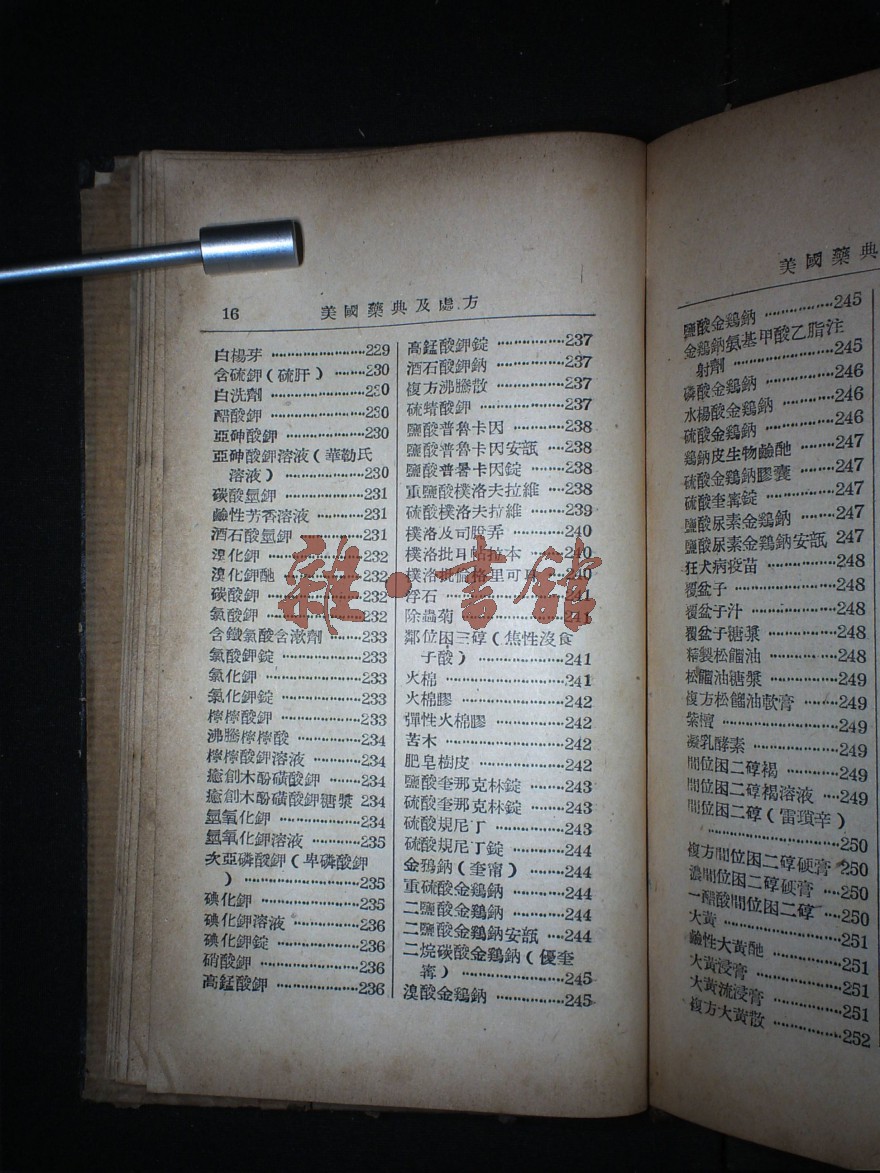 16
美國藥典及處方
白楊芽 …………………229
含硫鉀(硫肝) ……230
白洗劑 …………………230
醋酸鉀 …………………230
亞砷酸鉀 ………………230
亞砷酸鉀溶液(華勒氏
溶液) …………………230
碳酸氫鉀 ………………231
鹼性芳香溶液 …………231
酒石酸氫鉀 ……………231
溴化鉀 …………………232
溴化鉀酏 ………………232
碳酸鉀 …………………232
氯酸鉀 …………………232
含鐵氯酸含漱劑 ………233
氯酸鉀錠 ………………233
氯化鉀 …………………233
氯化鉀錠 ………………233
檸檬酸鉀 ………………233
沸騰檸檬酸 ……………234
檸檬酸鉀溶液 …………234
癒創木酚磺酸鉀 ………234
癒創木酚磺酸鉀糖漿 234
氫氧化鉀 ………………234
氫氧化鉀溶液 …………235
次亞磷酸鉀(卑磷酸鉀
) ………………………235
碘化鉀 …………………235
碘化鉀溶液 ……………236
碘化鉀錠 ………………236
硝酸鉀 …………………236
高錳酸鉀 ………………236
高錳酸鉀錠 ……………237
酒石酸鉀鈉 ……………237
複方沸騰散 ……………237
硫蜻酸鉀 ………………237
鹽酸普魯卡因 …………238
鹽酸普魯卡因安瓿 …238
鹽酸普魯卡因錠 ………238
重鹽酸樸洛夫拉維 ……238
硫酸樸洛夫拉維 ………239
樸洛及司股弄 …………240
樸洛批耳帖拉本 ………240
樸洛批倫格里可耳 …240
浮石 ……………………241
除蟲菊 …………………241
鄰位困三醇(焦性沒食
子酸) …………………241
火棉 ……………………241
火棉膠 …………………242
彈性火棉膠 ……………242
苦木 ……………………242
肥皂樹皮 ………………242
鹽酸奎那克林錠 ………243
硫酸奎那克林錠 ………243
硫酸規尼丁 ……………243
硫酸規尼丁錠 …………244
金鷄鈉(奎甯) ………244
重硫酸金鷄鈉 …………244
二鹽酸金鷄鈉 …………244
二鹽酸金鷄鈉安瓿 …244
二烷碳酸金鷄鈉(優奎
甯) ……………………245
溴酸金鷄鈉 ……………245
雜·書舘
美國藥典
鹽酸金鷄鈉 ……………245
金鷄鈉氨基甲酸乙脂注
射劑 ……………………245
磷酸金鷄鈉 ……………246
水楊酸金鷄鈉 …………246
硫酸金鷄鈉 ……………246
鷄鈉皮生物鹼酏 ………247
硫酸金鷄鈉膠囊 ………247
硫酸奎甯錠 ……………247
鹽酸尿素金鷄鈉 ………247
鹽酸尿素金鷄鈉安瓿 247
狂犬病疫苗 ……………248
覆盆子 …………………248
覆盆子汁 ………………248
覆盆子糖漿 ……………248
精製松餾油 ……………248
松餾油糖漿 ……………249
複方松餾油軟膏 ………249
紫檀 ……………………249
凝乳酵素 ………………249
間位困二醇褐 …………249
間位困二醇褐溶液 …249
間位困二醇(雷瑣辛)
……………………………250
複方間位困二醇硬膏 250
濃間位困二醇硬膏 …250
一醋酸間位困二醇 …250
大黃 ……………………251
鹼性大黃酏 ……………251
大黃浸膏 ………………251
大黃流浸膏 ……………251
複方大黃散 ……………252